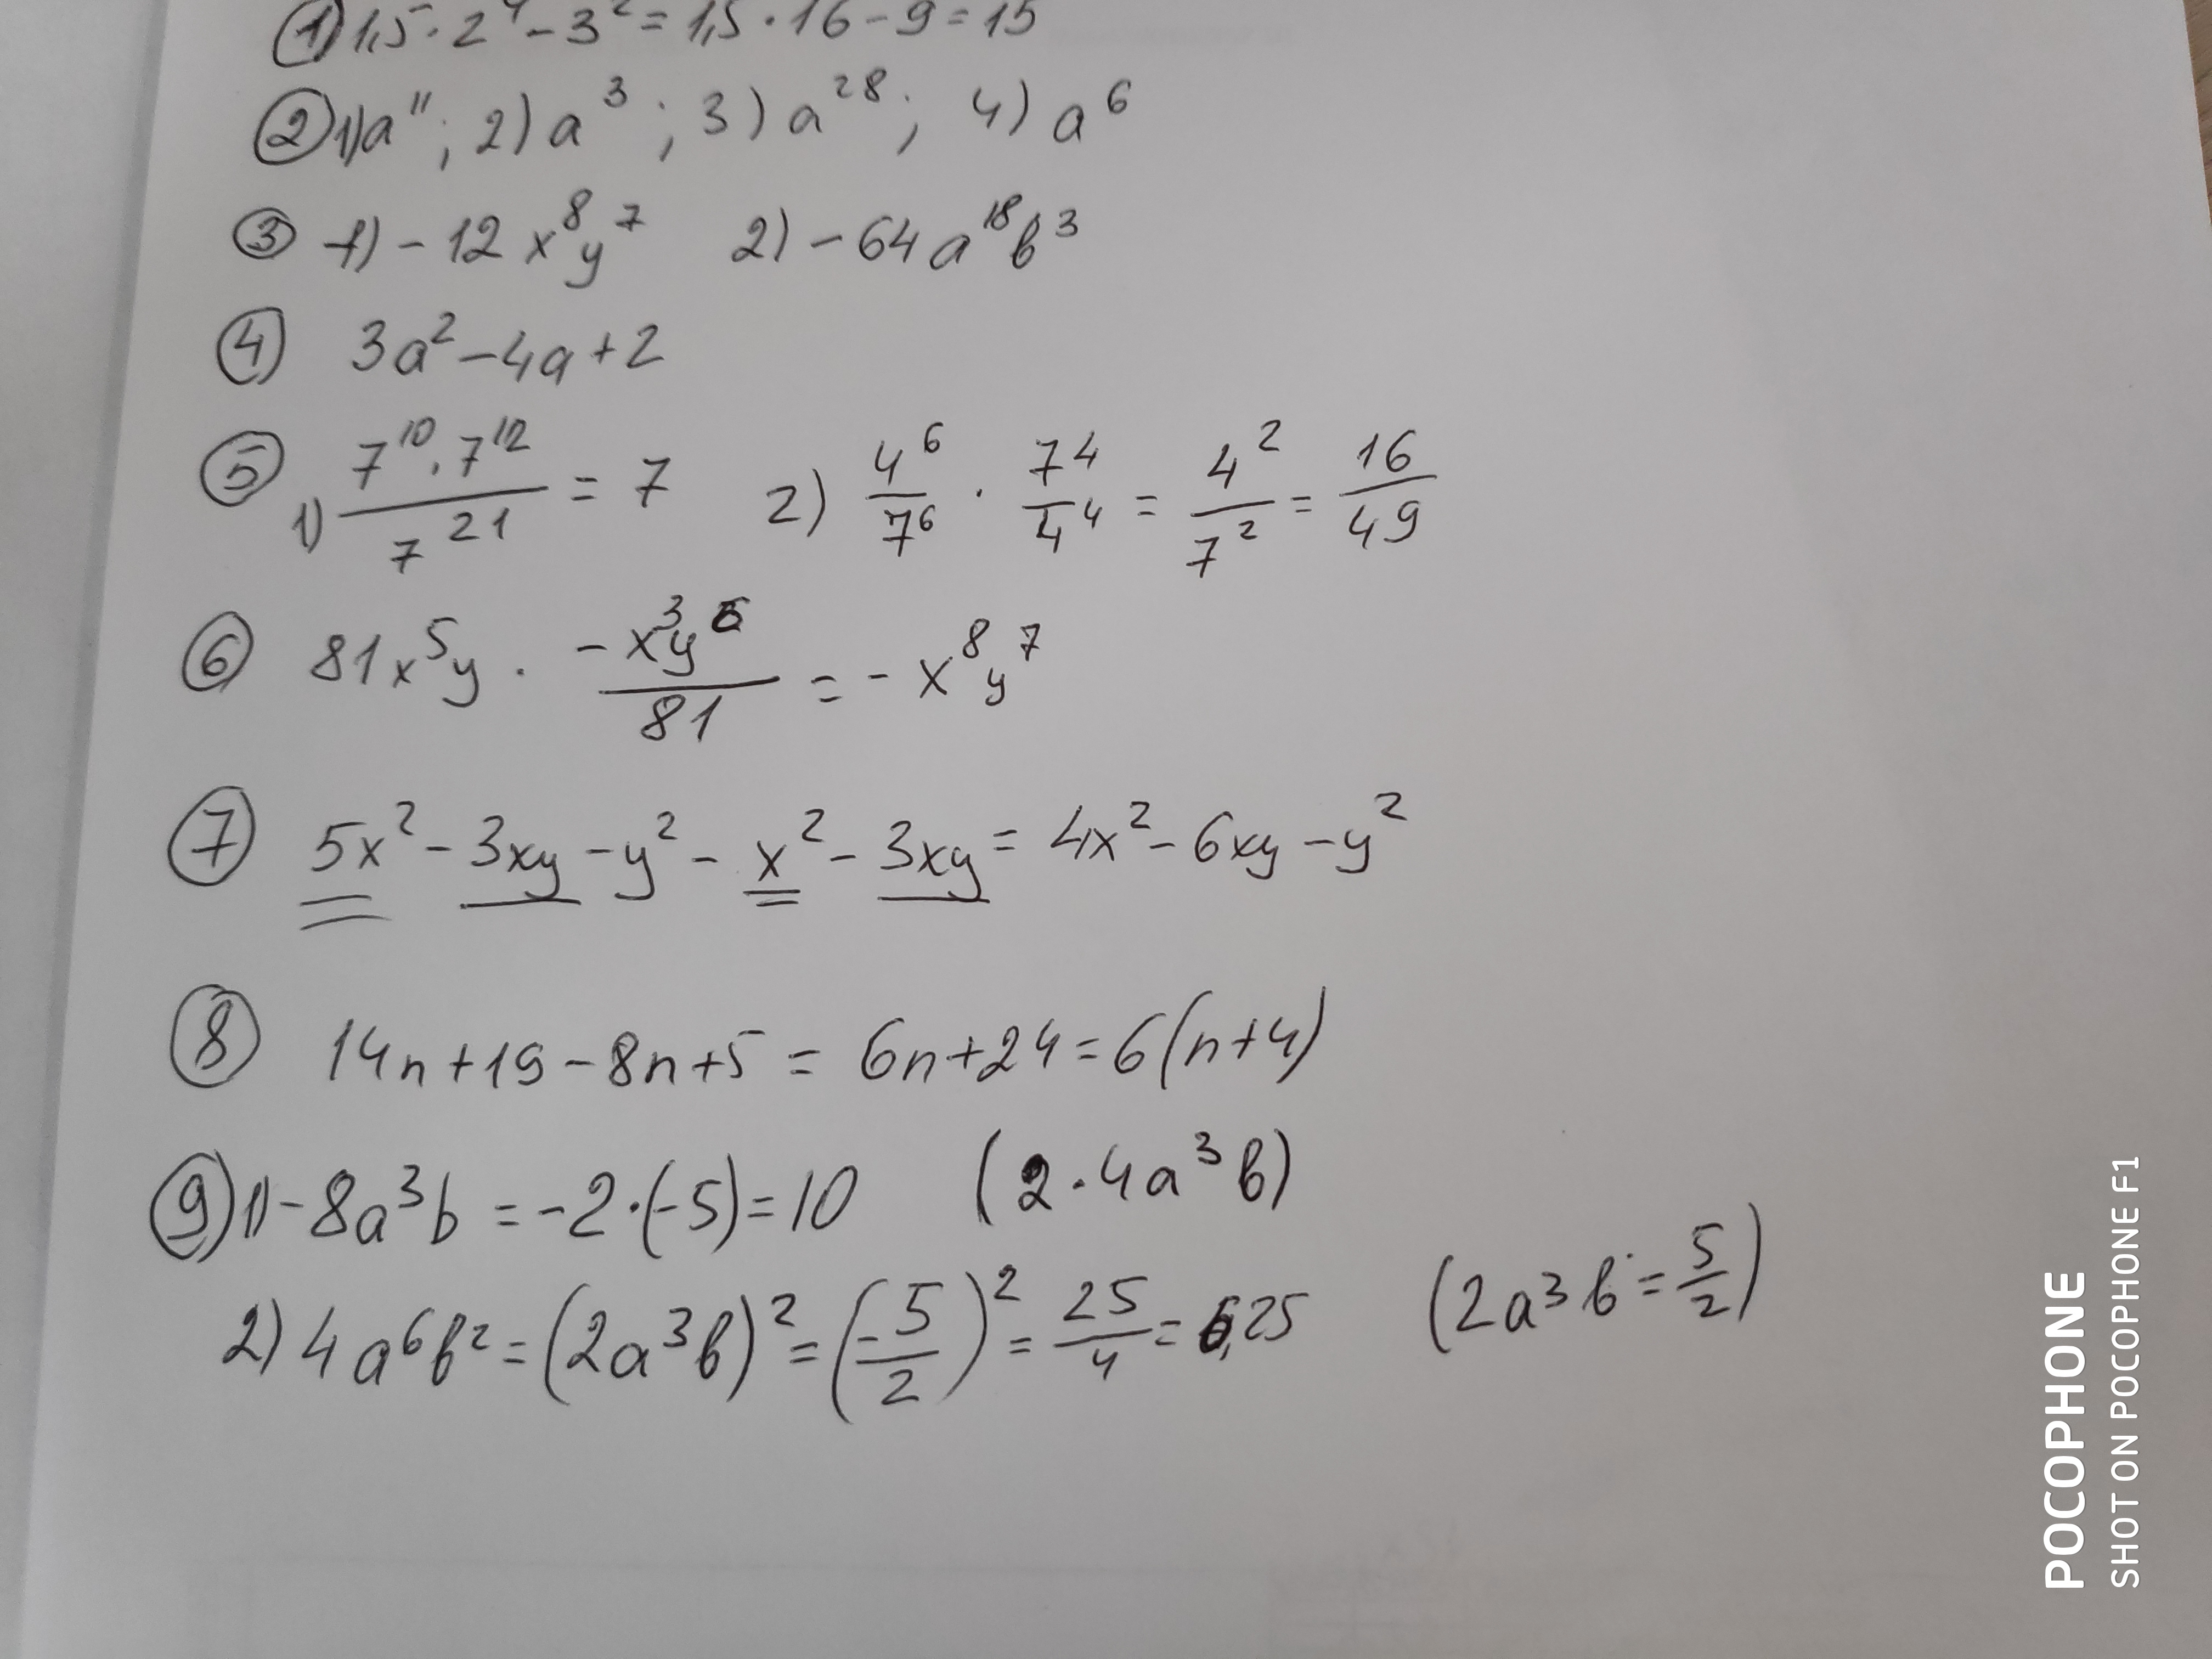 ① 1,5 · 2⁴ - 3² = 1,5 · 16 - 9 = 15
② 1) a¹¹ ; 2) a³ ; 3) a²⁸ ; 4) a⁶
③ 1) - 12 x⁸y⁷ 2) - 64 a¹⁸b³
④ 3a² - 4a + 2
⑤ 1) (7¹⁰ · 7¹²)/7²¹ = 7 2) 4⁶/7⁶ · 7⁴/4⁴ = 4²/7² = 16/49
⑥ 81x⁵y · (-x³y⁶)/81 = - x⁸y⁷
⑦ 5x² - 3xy - y² - x² - 3xy = 4x² - 6xy - y²
⑧ 14n + 19 - 8n + 5 = 6n + 24 = 6(n+4)
⑨ 1) - 8a³b = -2·(-5) = 10 (2·4a³b)
2) 4a⁶b² = (2a³b)² = (-5/2)² = 25/4 = 6,25 (2a³b = 5/2)
POCOPHONE
SHOT ON POCOPHONE F1